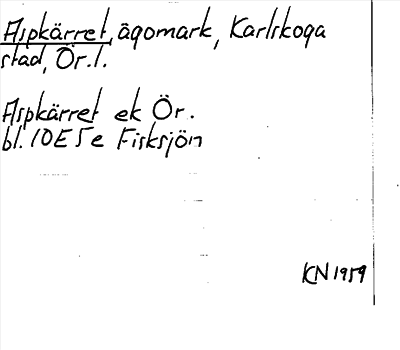 Aspkärret, ägomark, Karlskoga
stad, Ör.l.
Aspkärret ek Ör.
bl. 10E 5e Fisksjön
KN 1959